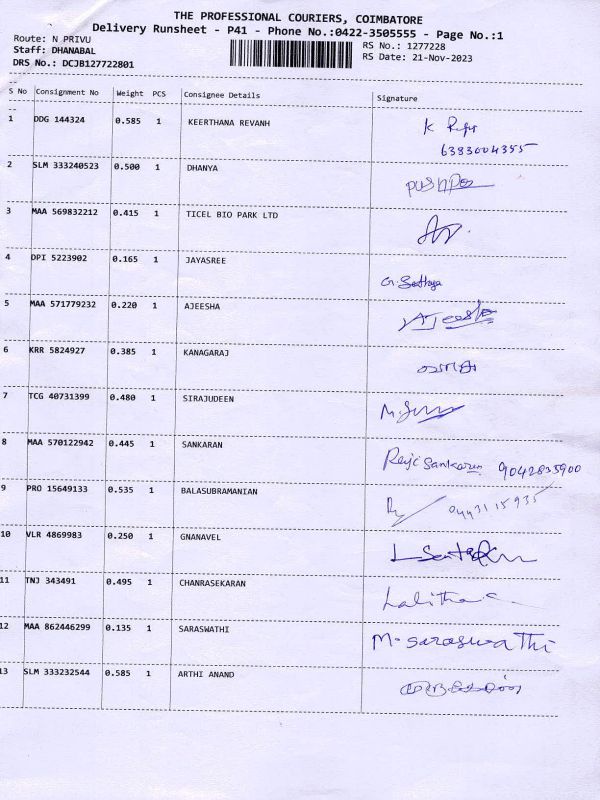 THE PROFESSIONAL COURIERS, COIMBATORE
Delivery Runsheet - P41 - Phone No.:0422-3505555 - Page No.:1
Route: N PRIVU RS No.: 1277228
Staff: DHANABAL RS Date: 21-Nov-2023
DRS No.: DCJB127722801
S No Consignment No Weight PCS Consignee Details Signature
1 DDG 144324 0.585 1 KEERTHANA REVANH K
6383004355
2 SLM 333240523 0.500 1 DHANYA
3 MAA 569832212 0.415 1 TICEL BIO PARK LTD
4 DPI 5223902 0.165 1 JAYASREE G. Sathya
5 MAA 571779232 0.220 1 AJEESHA AJeesha
6 KRR 5824927 0.385 1 KANAGARAJ
7 TCG 40731399 0.480 1 SIRAJUDEEN
8 MAA 570122942 0.445 1 SANKARAN Sankaran 9042835900
9 PRO 15649133 0.535 1 BALASUBRAMANIAN
10 VLR 4869983 0.250 1 GNANAVEL
11 TNJ 343491 0.495 1 CHANRASEKARAN Lalitha
12 MAA 862446299 0.135 1 SARASWATHI M. Saraswathi
13 SLM 333232544 0.585 1 ARTHI ANAND